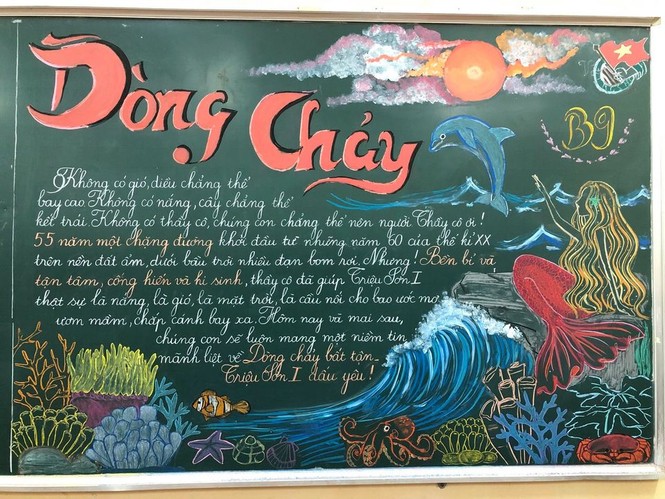 Dòng Chảy
B9
Không có gió, diều chẳng thể
bay cao Không có nắng, cây chẳng thể
kết trái Không có thầy cô, chúng con chẳng thể nên người Thầy cô ơi!
55 năm một chặng đường khởi đầu từ những năm 60 của thế kỉ XX
trên nền đất ấm, dưới bầu trời nhiều đạn bom rơi. Nhưng! Bền bỉ và
tận tâm, cống hiến và hi sinh, thầy cô đã giúp Triệu Sơn I
thật sự là nắng, là gió, là mặt trời, là cầu nối cho bao ước mơ
ươm mầm, chắp cánh bay xa. Hôm nay và mai sau,
chúng con sẽ luôn mang một niềm tin
mãnh liệt về Dòng chảy bất tận_
Triệu Sơn I dấu yêu!